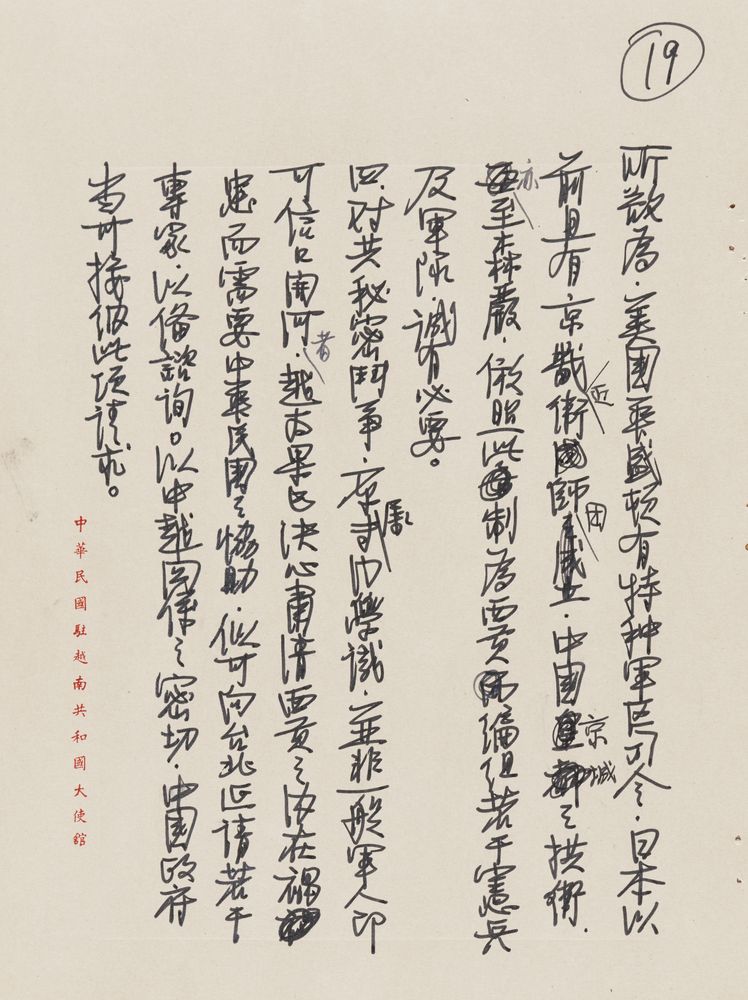 19
所識為。美國華盛頓有特种軍区司令。日本以
前且有京畿近衛師团。中國京城之拱衛。
亦至森嚴。倣照此制為西貢編組若干憲兵
及軍隊。誠有必要。
四、对共秘密鬥爭。屬專门學識。並非一般軍人即
可信口開河者。越南果已決心肅清西貢之內在禍
患而需要中華民國之協助。似可向台北延請若干
專家。以備諮詢。以中越関係之密切。中國政府
当可接纳此項請求。
中華民國駐越南共和國大使館